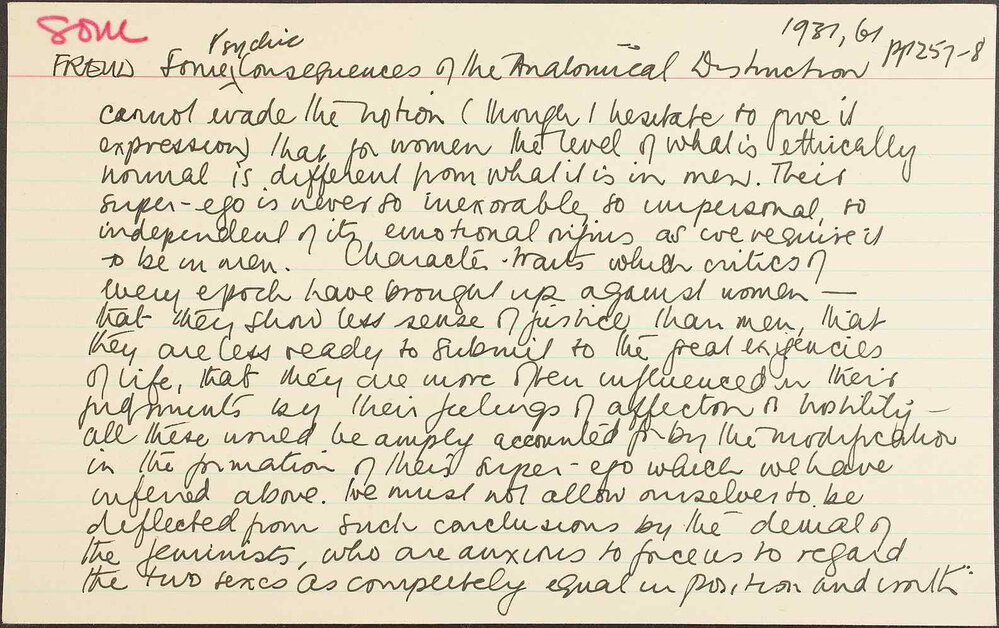 SOM
1931, 61 pp 257-8
FREUD Some Psychic Consequences of the Anatomical Distinction
cannot evade the notion (though I hesitate to give it
expression) that for women the level of what is ethically
normal is different from what it is in men. Their
super-ego is never so inexorable, so impersonal, so
independent of its emotional origins as we require it
to be in men. Character-traits which critics of
every epoch have brought up against women —
that they show less sense of justice than men, that
they are less ready to submit to the great exigencies
of life, that they are more often influenced in their
judgments by their feelings of affection or hostility —
all these would be amply accounted for by the modification
in the formation of their super-ego which we have
inferred above. We must not allow ourselves to be
deflected from such conclusions by the denial of
the feminists, who are anxious to force us to regard
the two sexes as completely equal in position and worth"